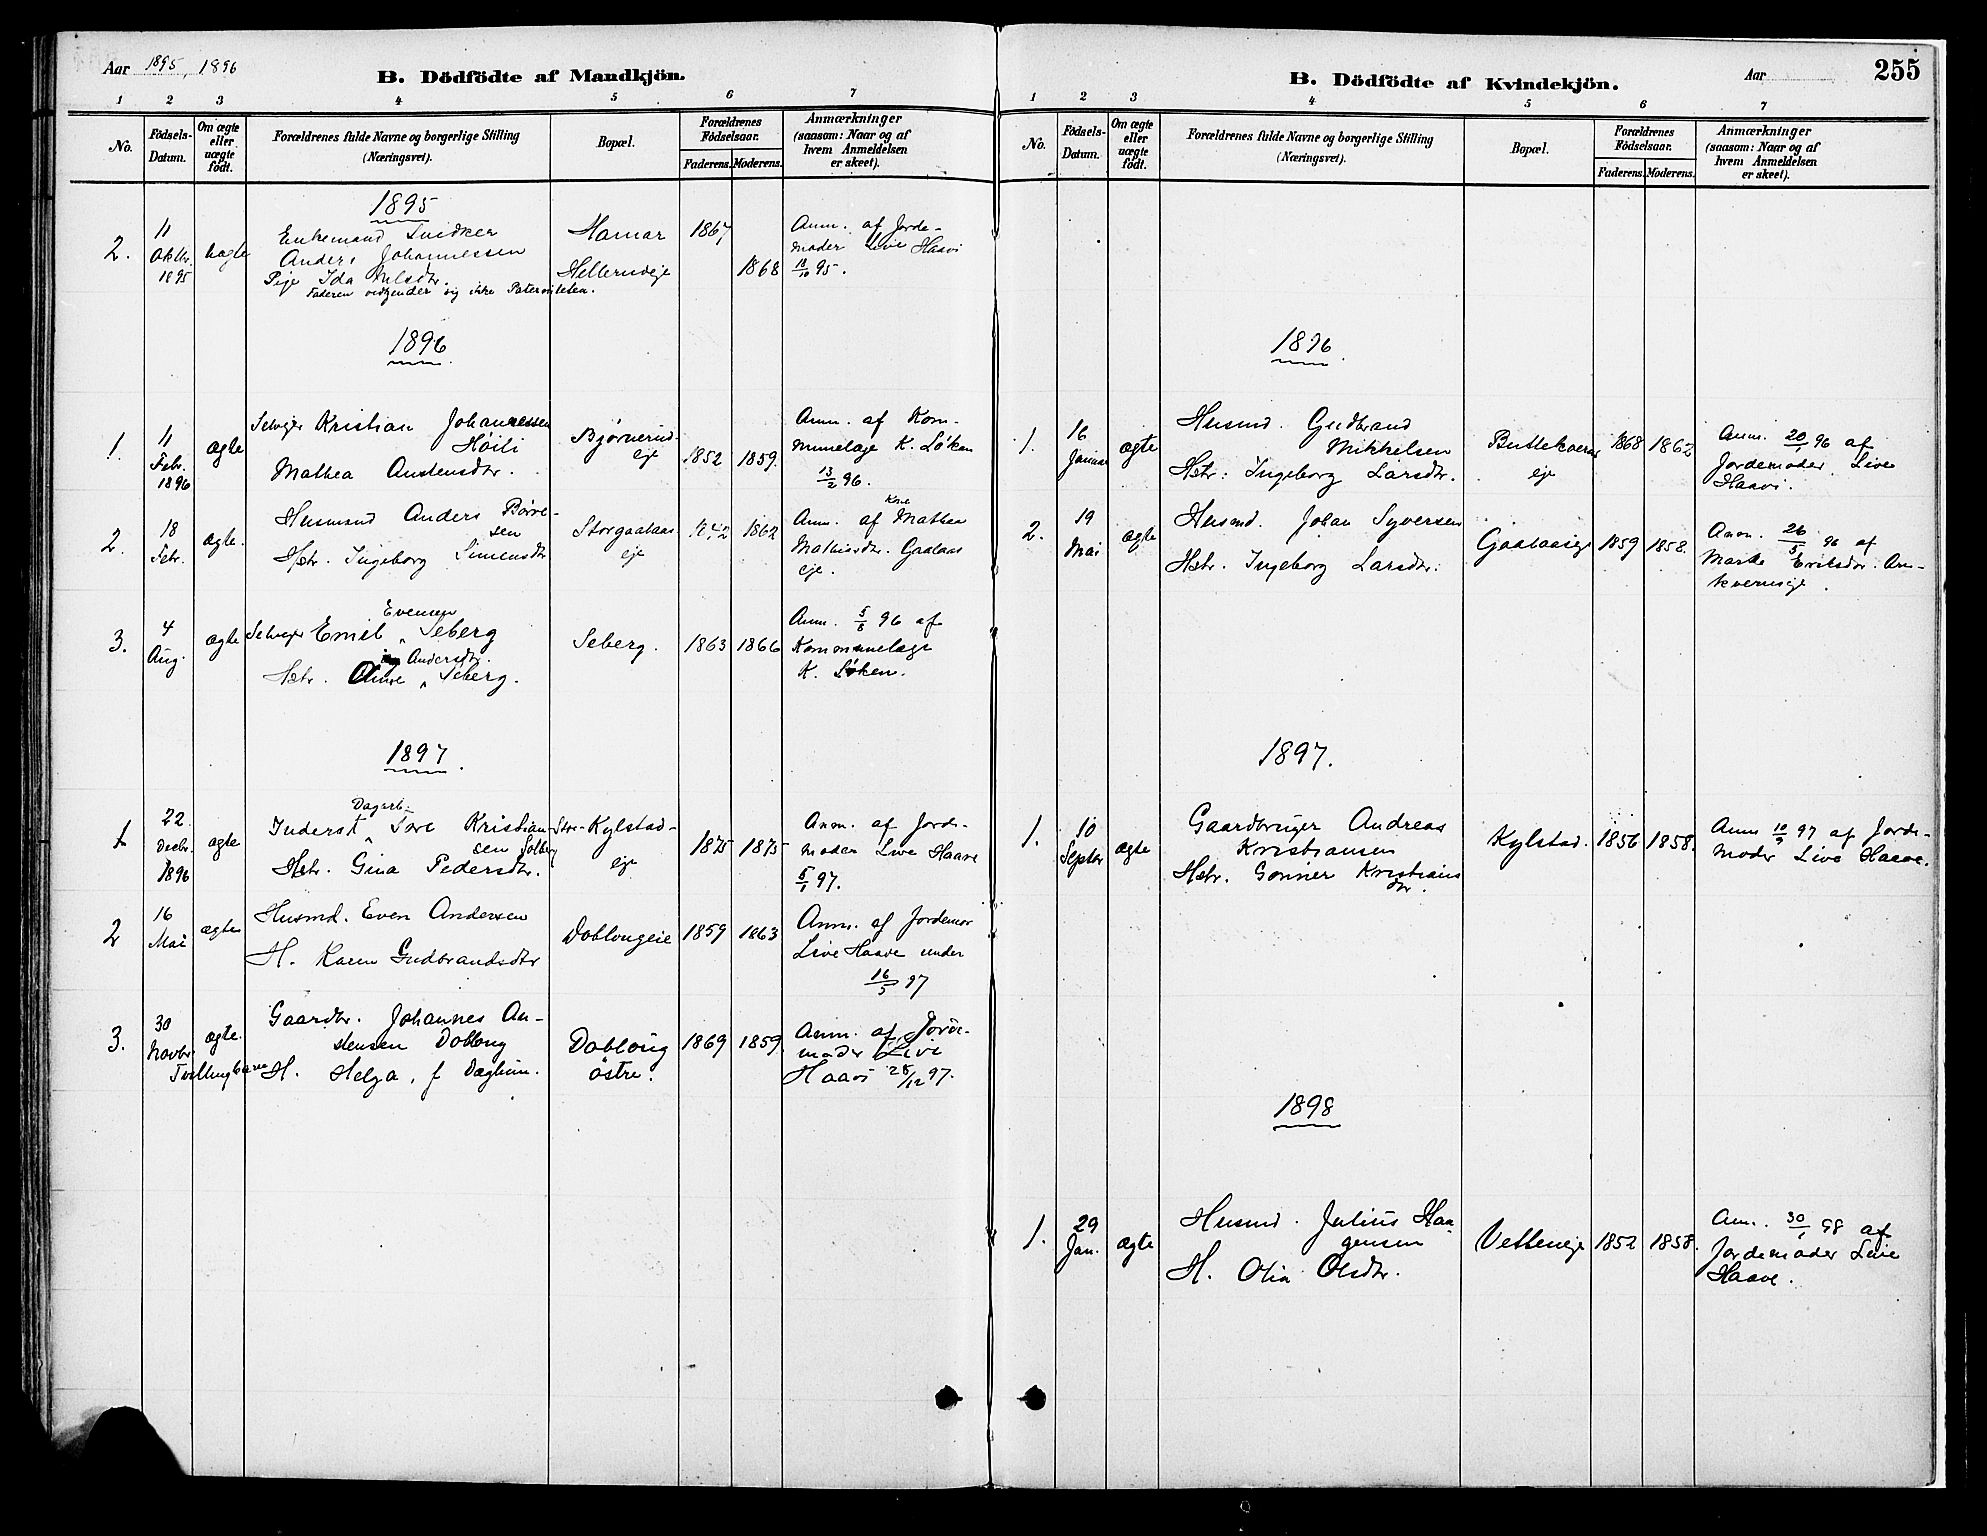 Aar 1895, 1896
B. Dödfödte af Mandkjön.
1 2 3 4 5 6 7
No.
Födsels-Datum.
Om ægte eller uægte födt.
Forældrenes fulde Navne og borgerlige Stilling (Næringsvei).
Bopæl.
Forældrenes Födselsaar.
Faderens. Moderens.
Anmærkninger (saasom: Naar og af hvem Anmeldelsen er skeet).
1895
2. 11 Oktbr. 1895 uægte
Enkemand Snidker
Anders Johannessen
Pige Ida Nilsdtr.
Faderen vedkjender sig ikke Paterniteten.
Hamar
Hellerudeje
1867 1868
Anm. af Jorde-
moder Live Haavi
18/10 95.
1896
1. 11 Febr. 1896 ægte
Selveier Kristian Johannessen
Høili
Mathea Austensdtr.
Bjørnerud-
eje
1852 1859.
Anm. af Kom-
munelæge K. Løken
13/2 96.
2. 18 Febr. ægte.
Husmand Anders Børre-
sen
Hstr. Ingeborg Simensdtr
Storgaalaas
eje
1862
Anm. af Kone Mathea
Mathisdtr. Gaalaas
eje.
3. 4 Aug. ægte
Evensen
Selveier Emil Seberg
Andersdtr.
Hstr. Anne Seberg.
Seberg.
1863 1866
Anm. 5/8 96 af
Kommunelæge
K. Løken.
1897.
1 22 Decbr. 1896 ægte
Dagarb.
Inderst Tore Kristian-
sen Solberg
Hstr. Gina Pedersdtr.
Store-Kylstad-
eje
1875 1875
Anm. af Jorde-
moder Live Haave
5/1 97.
2 16 Mai ægte
Husmd. Even Andersen
H. Karen Gudbrandsdtr
Doblougeie
1859 1863
Anm. af Jordemor
Live Haave under
16/5 97
3. 30 Novbr. ægte.
Tvillingbarn
Gaardbr. Johannes An-
stensen Dobloug
H. Helga, f Dæhlin.
Dobloug
østre.
1869 1859
Anm. af Jorde-
moder Live
Haavi 28/12 97.
Aar
255
B. Dödfödte af Kvindekjön.
1 2 3 4 5 6 7
No.
Födsels-Datum.
Om ægte eller uægte födt.
Forældrenes fulde Navne og borgerlige Stilling (Næringsvei).
Bopæl.
Forældrenes Födselsaar.
Faderens. Moderens.
Anmærkninger (saasom: Naar og af hvem Anmeldelsen er skeet).
1896.
1. 16 Januar ægte
Husmd. Gudbrand
Mikkelsen
Hstr: Ingeborg Larsdtr.
Buttekvern
eje
1868 1862
Anm. 20/1 96 af
Jordemoder Live
Haavi.
2. 19 Mai ægte
Husmd. Johan Syversen
Hstr. Ingeborg Larsdtr.
Gaalaaseje
1859 1858.
Anm. 26/5 96 af
Marte Eriksdtr. An-
kverneje.
1897.
1. 10 Septbr ægte
Gaardbruger Andreas
Kristiansen
Hstr. Gunner Kristians
dtr.
Kylstad.
1856 1858.
Anm 10/9 97 af Jorde-
moder Live Haave.
1898
1. 29 Jan. ægte
Husmd. Julius Haa-
gensen
H. Olia Olsdtr.
Vetteneje
1852 1858.
Anm. 30/1 98 af
Jordemoder Live
Haave.